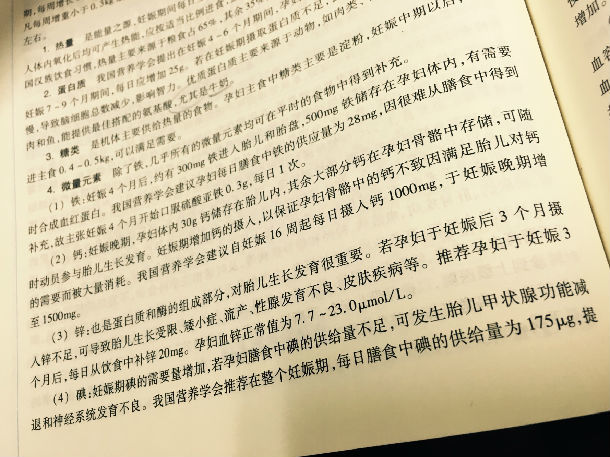 期,每周增长
凡每周增重小于0.3kg
左右。
1. 热量 是能量之源,妊娠期间每日
人体内氧化后均可产生热能,应按适当比例进食,
国汉族饮食习惯,热量主要来源于粮食占65%,其余35%
2. 蛋白质 我国营养学会提出在妊娠4~6个月期间,孕
妊娠7~9个月期间,每日应增加25g。若在妊娠期摄取蛋白质不足,
慢,导致脑细胞总数减少,影响智力。优质蛋白质主要来源于动物,如肉类、
肉和鱼,能提供最佳搭配的氨基酸,尤其是牛奶。
3. 糖类 是机体主要供给热量的食物。孕妇主食中糖类主要是淀粉,妊娠中期以后,
进主食0.4~0.5kg,可以满足需要。
4. 微量元素 除了铁,几乎所有的微量元素均可在平时的食物中得到补充。
(1) 铁:妊娠4个月后,约有300mg铁进入胎儿和胎盘,500mg铁储存在孕妇体内,有需要
时合成血红蛋白。我国营养学会建议孕妇每日膳食中铁的供应量为28mg,因很难从膳食中得到
补充,故主张妊娠4个月开始口服硫酸亚铁0.3g,每日1次。
(2) 钙:妊娠晚期,孕妇体内30g钙储存在胎儿内,其余大部分钙在孕妇骨骼中存储,可随
时动员参与胎儿生长发育。妊娠期增加钙的摄入,以保证孕妇骨骼中的钙不致因满足胎儿对钙
的需要而被大量消耗。我国营养学会建议自妊娠16周起每日摄入钙1000mg,于妊娠晚期增
至1500mg。
(3) 锌:也是蛋白质和酶的组成部分,对胎儿生长发育很重要。若孕妇于妊娠后3个月摄
入锌不足,可导致胎儿生长受限、矮小症、流产、性腺发育不良、皮肤疾病等。推荐孕妇于妊娠3
个月后,每日从饮食中补锌20mg。孕妇血锌正常值为7.7~23.0μmol/L。
(4) 碘:妊娠期碘的需要量增加,若孕妇膳食中碘的供给量不足,可发生胎儿甲状腺功能减
退和神经系统发育不良。我国营养学会推荐在整个妊娠期,每日膳食中碘的供给量为175μg,提
增加。
血容
血